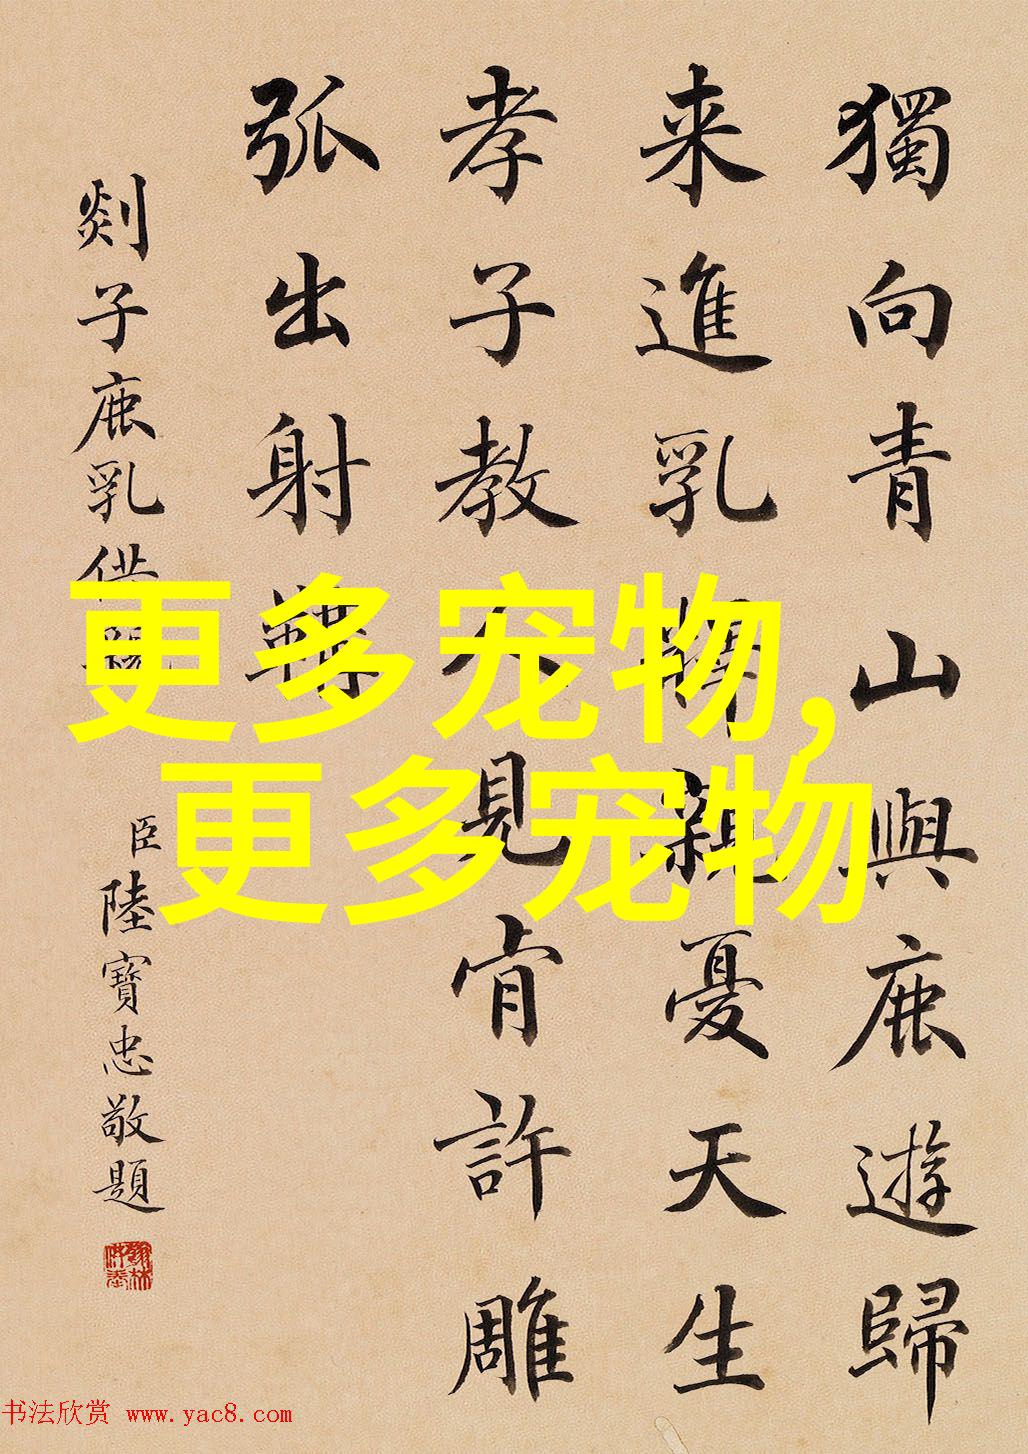 獨向青山與鹿遊歸
来進乳解親憂天生
孝子教人見肯許雕
弧出射韝
剡子鹿乳供親
臣陸寶忠敬題
更多宠物,
更多宠物
书法欣赏 www.yac8.com